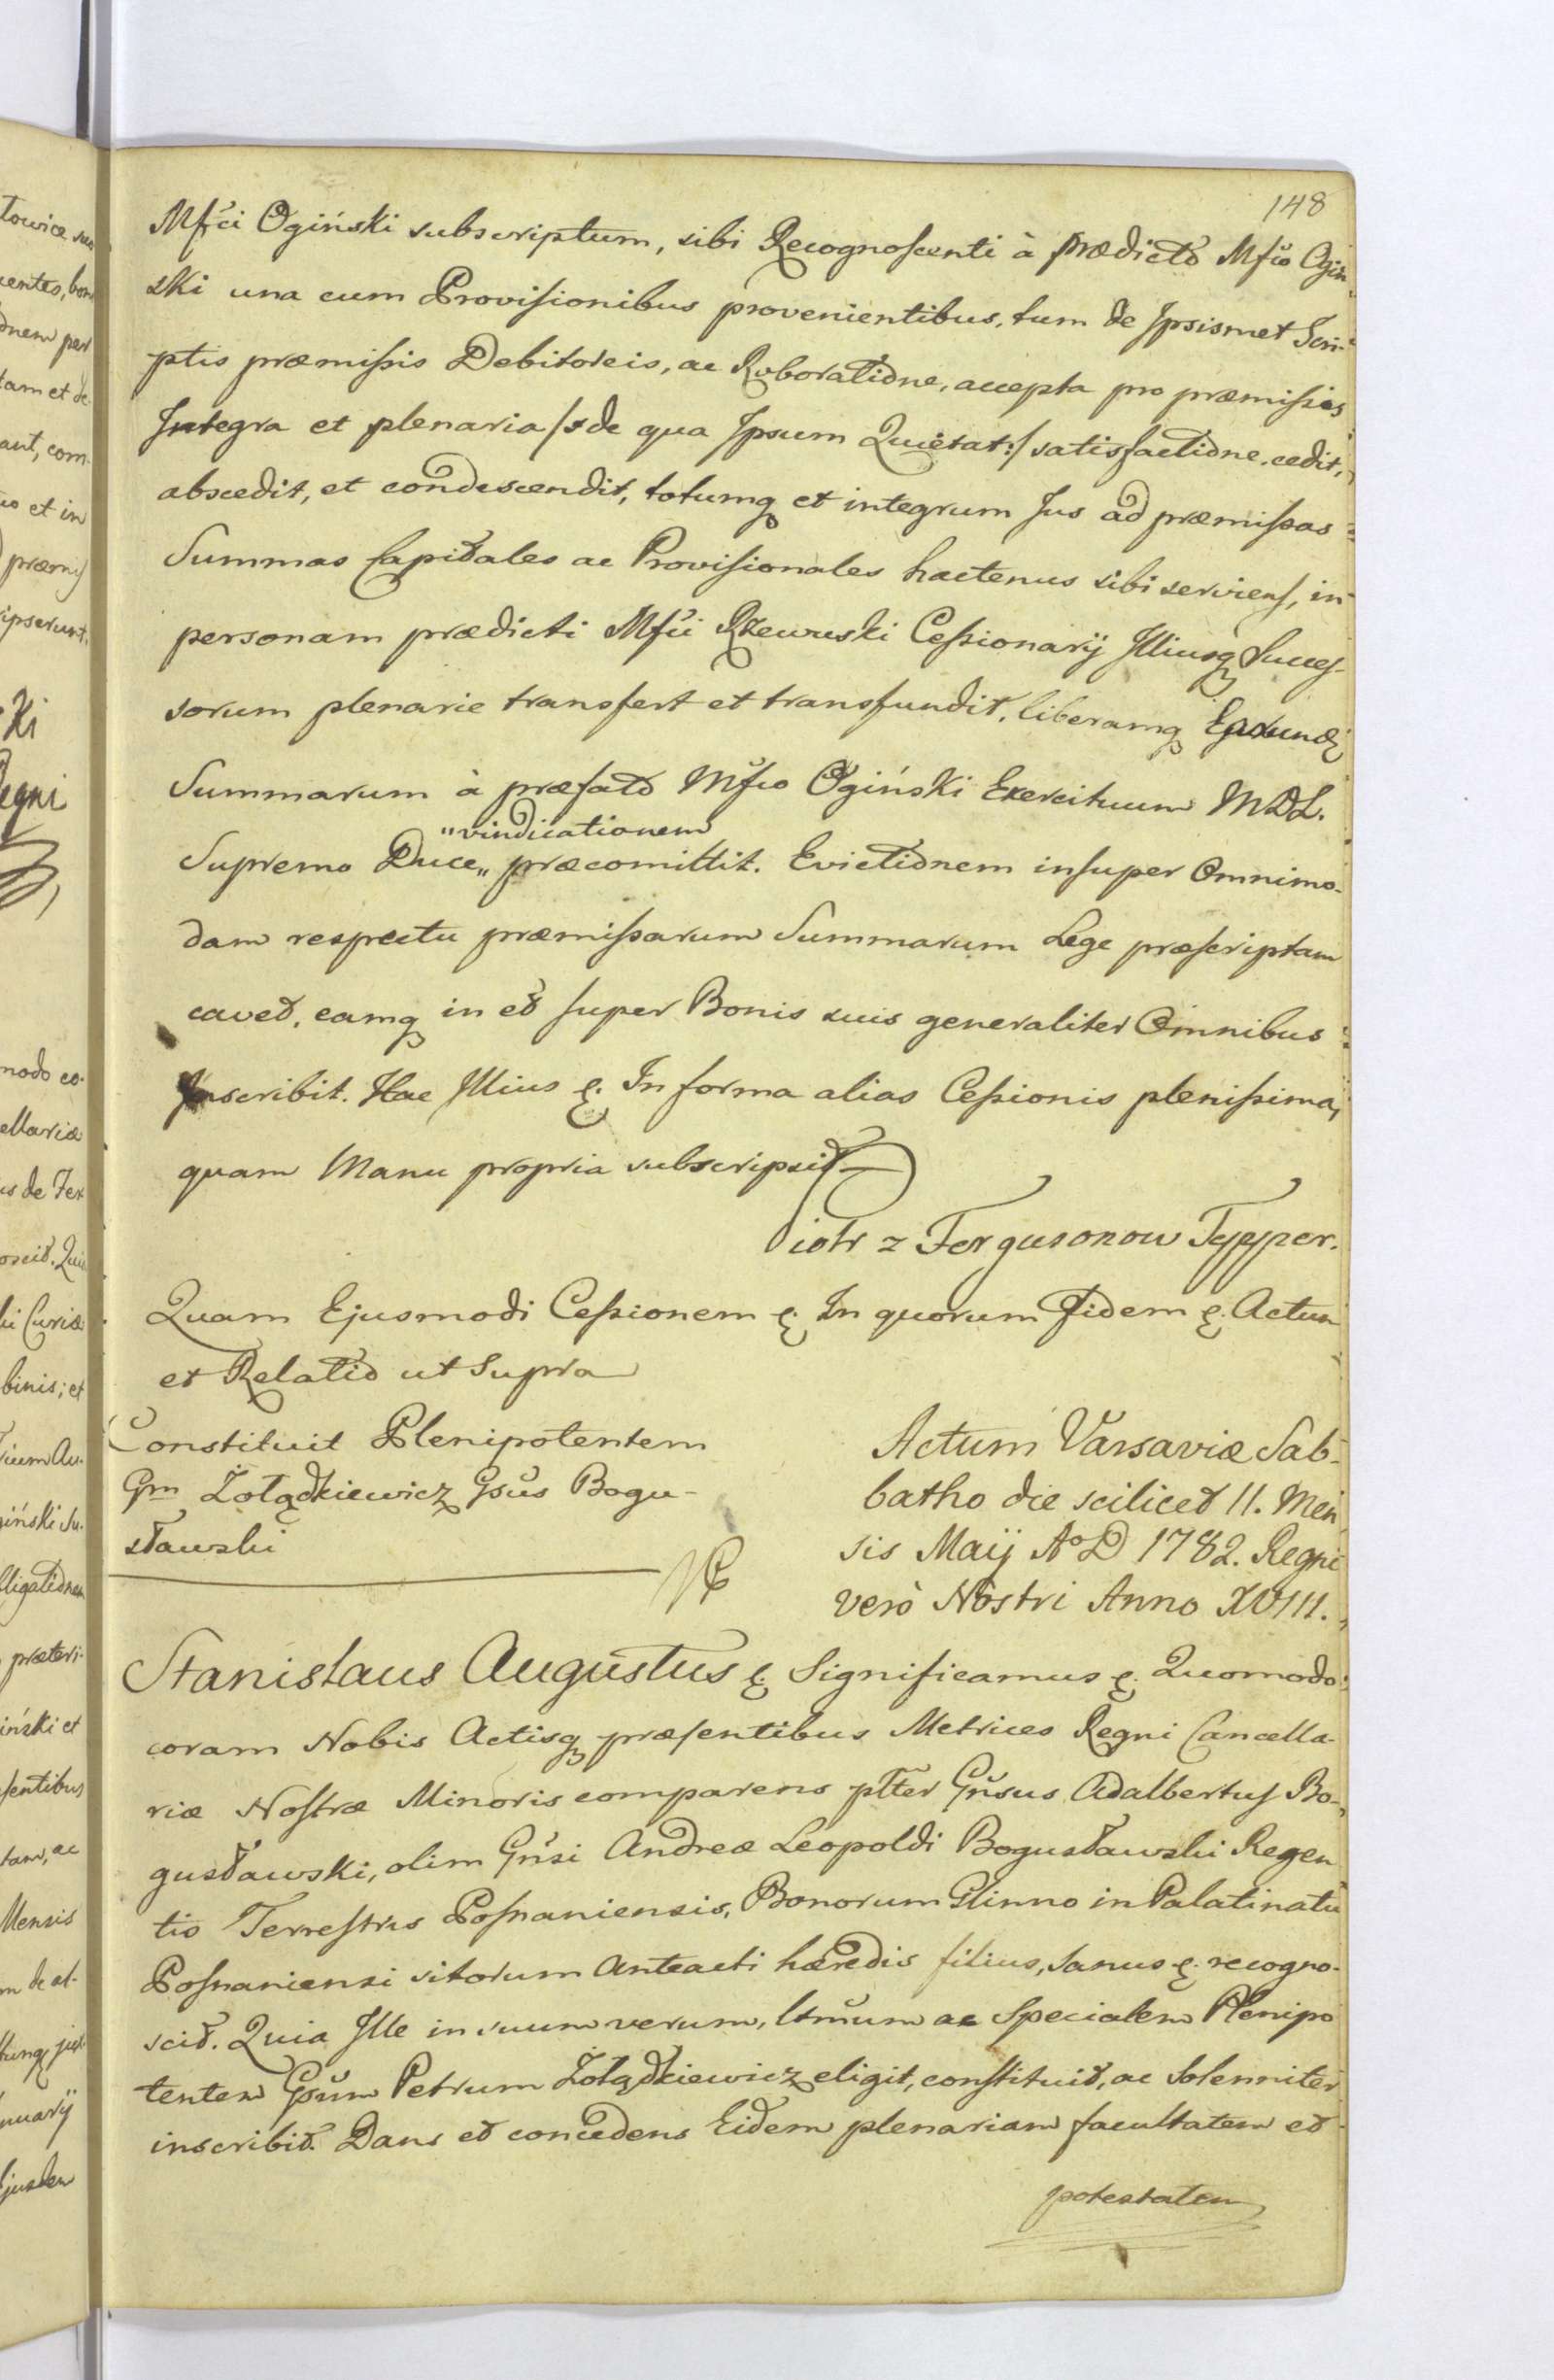 148
Mfci Ogiński subscriptum, sibi Recognoscenti à prædicto Mfco Ogiń-
ski una cum Provisionibus provenientibus, tum de Ipsismet Scri-
ptis præmissis Debitoreis, ac Roboratione, accepta pro præmissis
Integra et plenaria /:de qua Ipsum Quietat:/ satisfactione. cedit,
abscedit, et condescendit, totumq et integrum Jus ad præmissas
Summas Capitales ac Provisionales hactenus sibi serviens, in
personam prædicti Mfci Rzewuski Cessionarij Illiusq Succes-
sorum plenarie transfert et transfundit, liberamq Earund
Summarum à præfato Mfco Ogiński Exercituum MDL.
"vindicationem
Supremo Duce,, præcomittit. Evictionem insuper Omnimo-
dam respectu præmissarum Summarum Lege præscriptam
cavet, eamq in et super Bonis suis generaliter Omnibus
Inscribit. Hac Illius &. In forma alias Cessionis plenissima,
quam Manu propria subscripsit
Piotr z Fergusonow Tepper.
Quam Ejusmodi Cessionem &. In quorum Fidem &. Actum
et Relatio ut Supra
Constituit Plenipotentem
Gm Żołądkiewicz Gsus Bogu-
sławski
Actum Varsaviæ Sab-
batho die scilicet 11. Men
sis Maij A°D 1782. Regni
verò Nostri Anno XVIII.
Stanislaus Augustus &. Significamus &. Quomodo
coram Nobis Actisq præsentibus Metrices Regni Cancella-
riæ Nostræ Minoris comparens pltter Gnsus Adalbertus Bo-
gusławski, olim Gnsi Andreæ Leopoldi Bogusławski Regen
tis Terrestris Posnaniensis, Bonorum Glinno in Palatinatu
Posnaniensi sitorum Anteacti hæredis filius, sanus &. recogno-
scit. Quia Ille in suum verum, ltmum ac Specialem Plenipo
tentem Gsum Petrum Żołądkiewicz eligit, constituit, ac Solenniter
inscribit. Dans et concedens Eidem plenariam facultatem et
potestatem